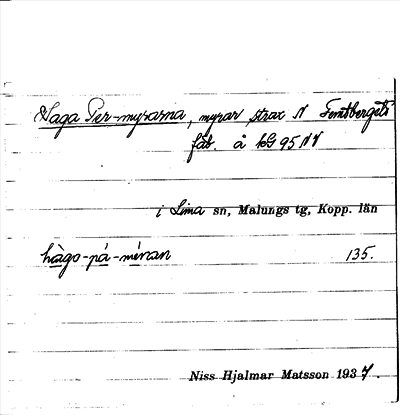 Haga Per-myrarna, myrar strax N Femtbergets
fäb. å kG 95 NV
i Lima sn, Malungs tg, Kopp. län
hàgo-pá-méran 135.
Niss Hjalmar Matsson 1937.